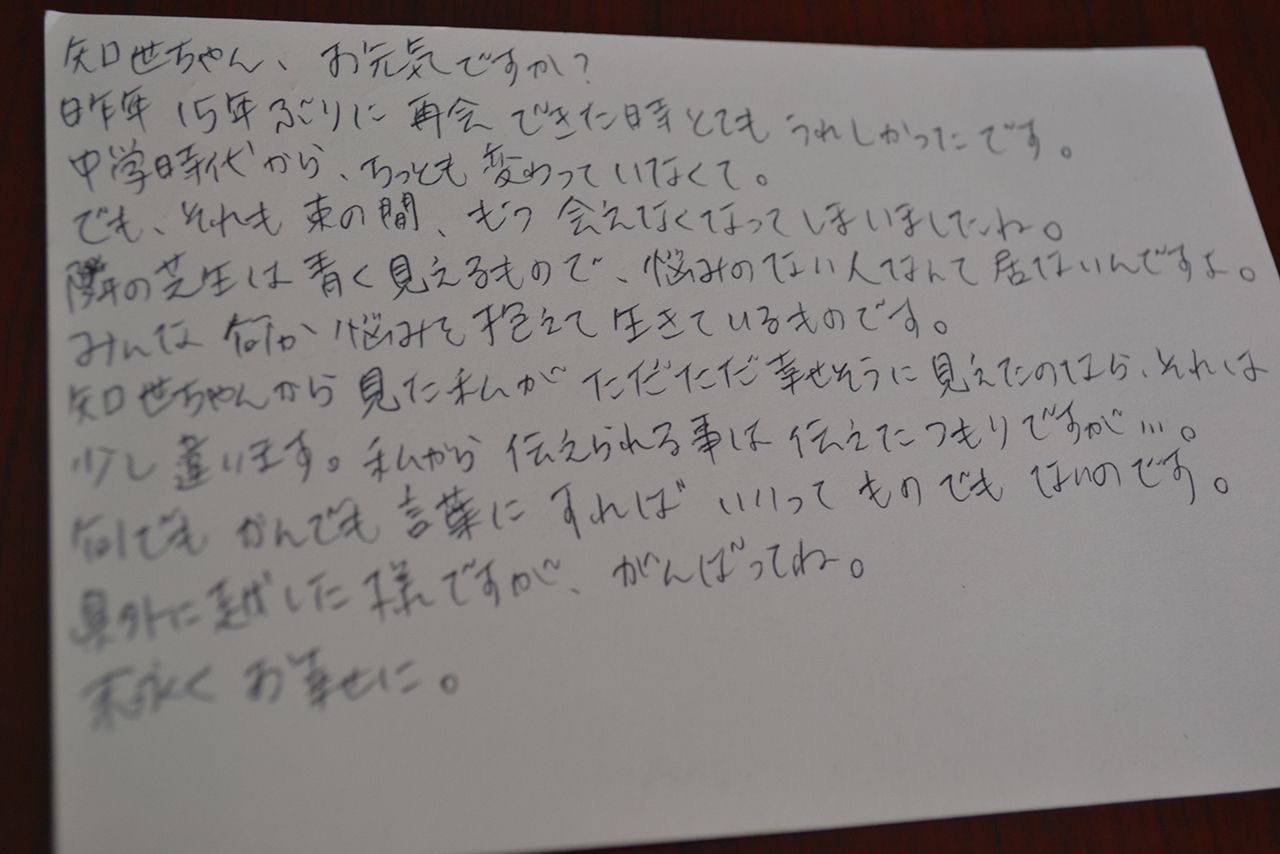 知世ちゃん、お元気ですか?
昨年 15年ぶりに 再会 できた時 とても うれしかったです。
中学時代から、ちっとも 変わって いなくて。
でも、それも 束の間、もう 会えなくなって しまいましたね。
隣の芝生は 青く 見えるもので、悩みのない人なんて 居ないんですよ。
みんな 何か 悩みを 抱えて 生きているものです。
知世ちゃんから 見た 私が ただただ 幸せそうに 見えたのなら、それは
少し 違います。私から 伝えられる事は 伝えた つもりですが…。
何でも かんでも 言葉に すれば いいって ものでも ないのです。
県外に 越した 様ですが、がんばってね。
末永く お幸せに。